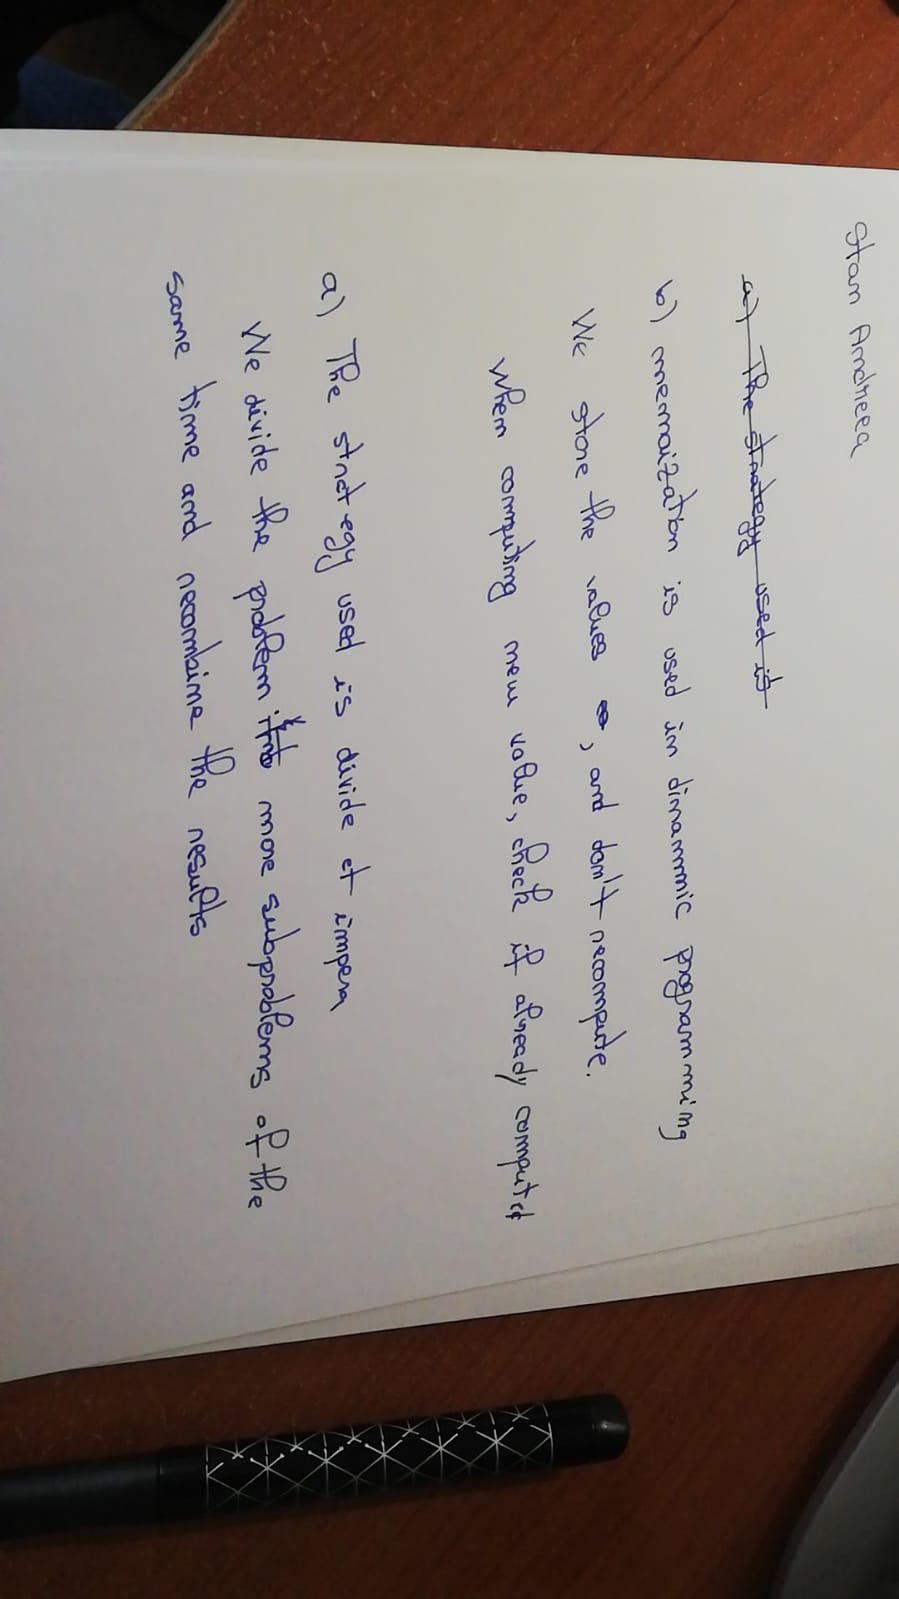 Stan Andreea
a) The strategy used is
b) memoization is used in dinammic programming
We store the values , and don't recompute.
When computing new value, check if already computed
a) The strategy used is divide et impera
We divide the problem into more subproblems of the
same time and recombine the results